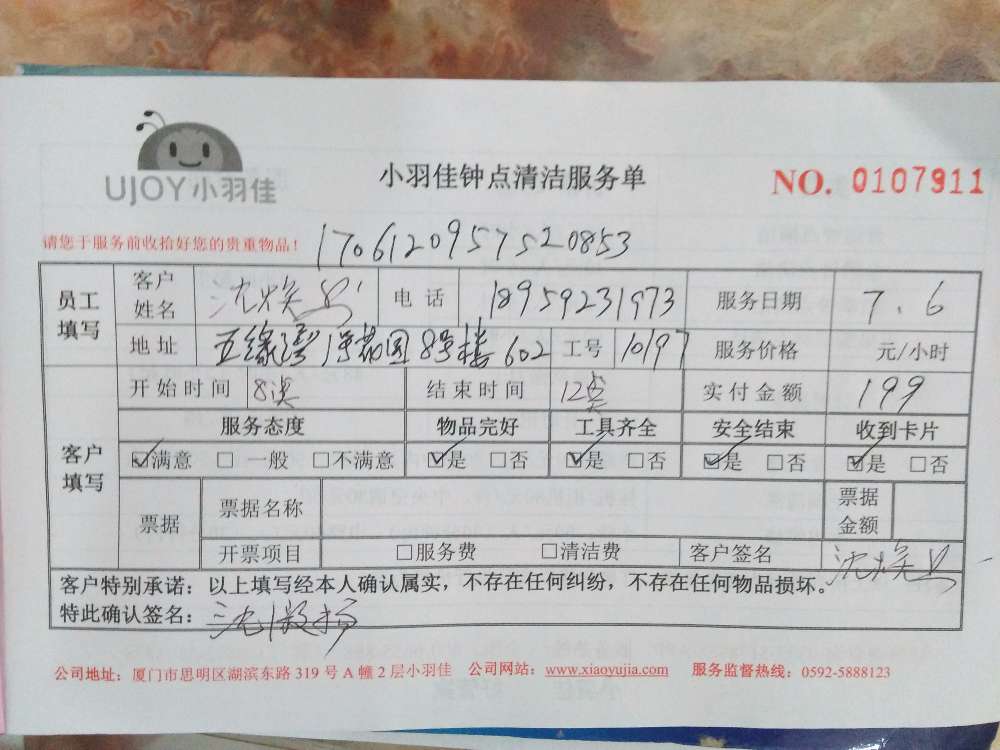 UJOY小羽佳
小羽佳钟点清洁服务单
NO. 0107911
请您于服务前收拾好您的贵重物品!
1706120957520853
员工填写 客户姓名 沈焕 电话 18959231973 服务日期 7.6
地址 五缘湾1号花园8号楼602 工号 10197 服务价格 元/小时
客户填写 开始时间 8点 结束时间 12点 实付金额 199
服务态度 物品完好 工具齐全 安全结束 收到卡片
☑满意 □一般 □不满意 ☑是 □否 ☑是 □否 ☑是 □否 ☑是 □否
票据 票据名称 票据金额
开票项目 □服务费 □清洁费 客户签名 沈焕
客户特别承诺:以上填写经本人确认属实,不存在任何纠纷,不存在任何物品损坏。
特此确认签名:沈
公司地址:厦门市思明区湖滨东路319号A幢2层小羽佳 公司网站:www.xiaoyujia.com 服务监督热线:0592-5888123